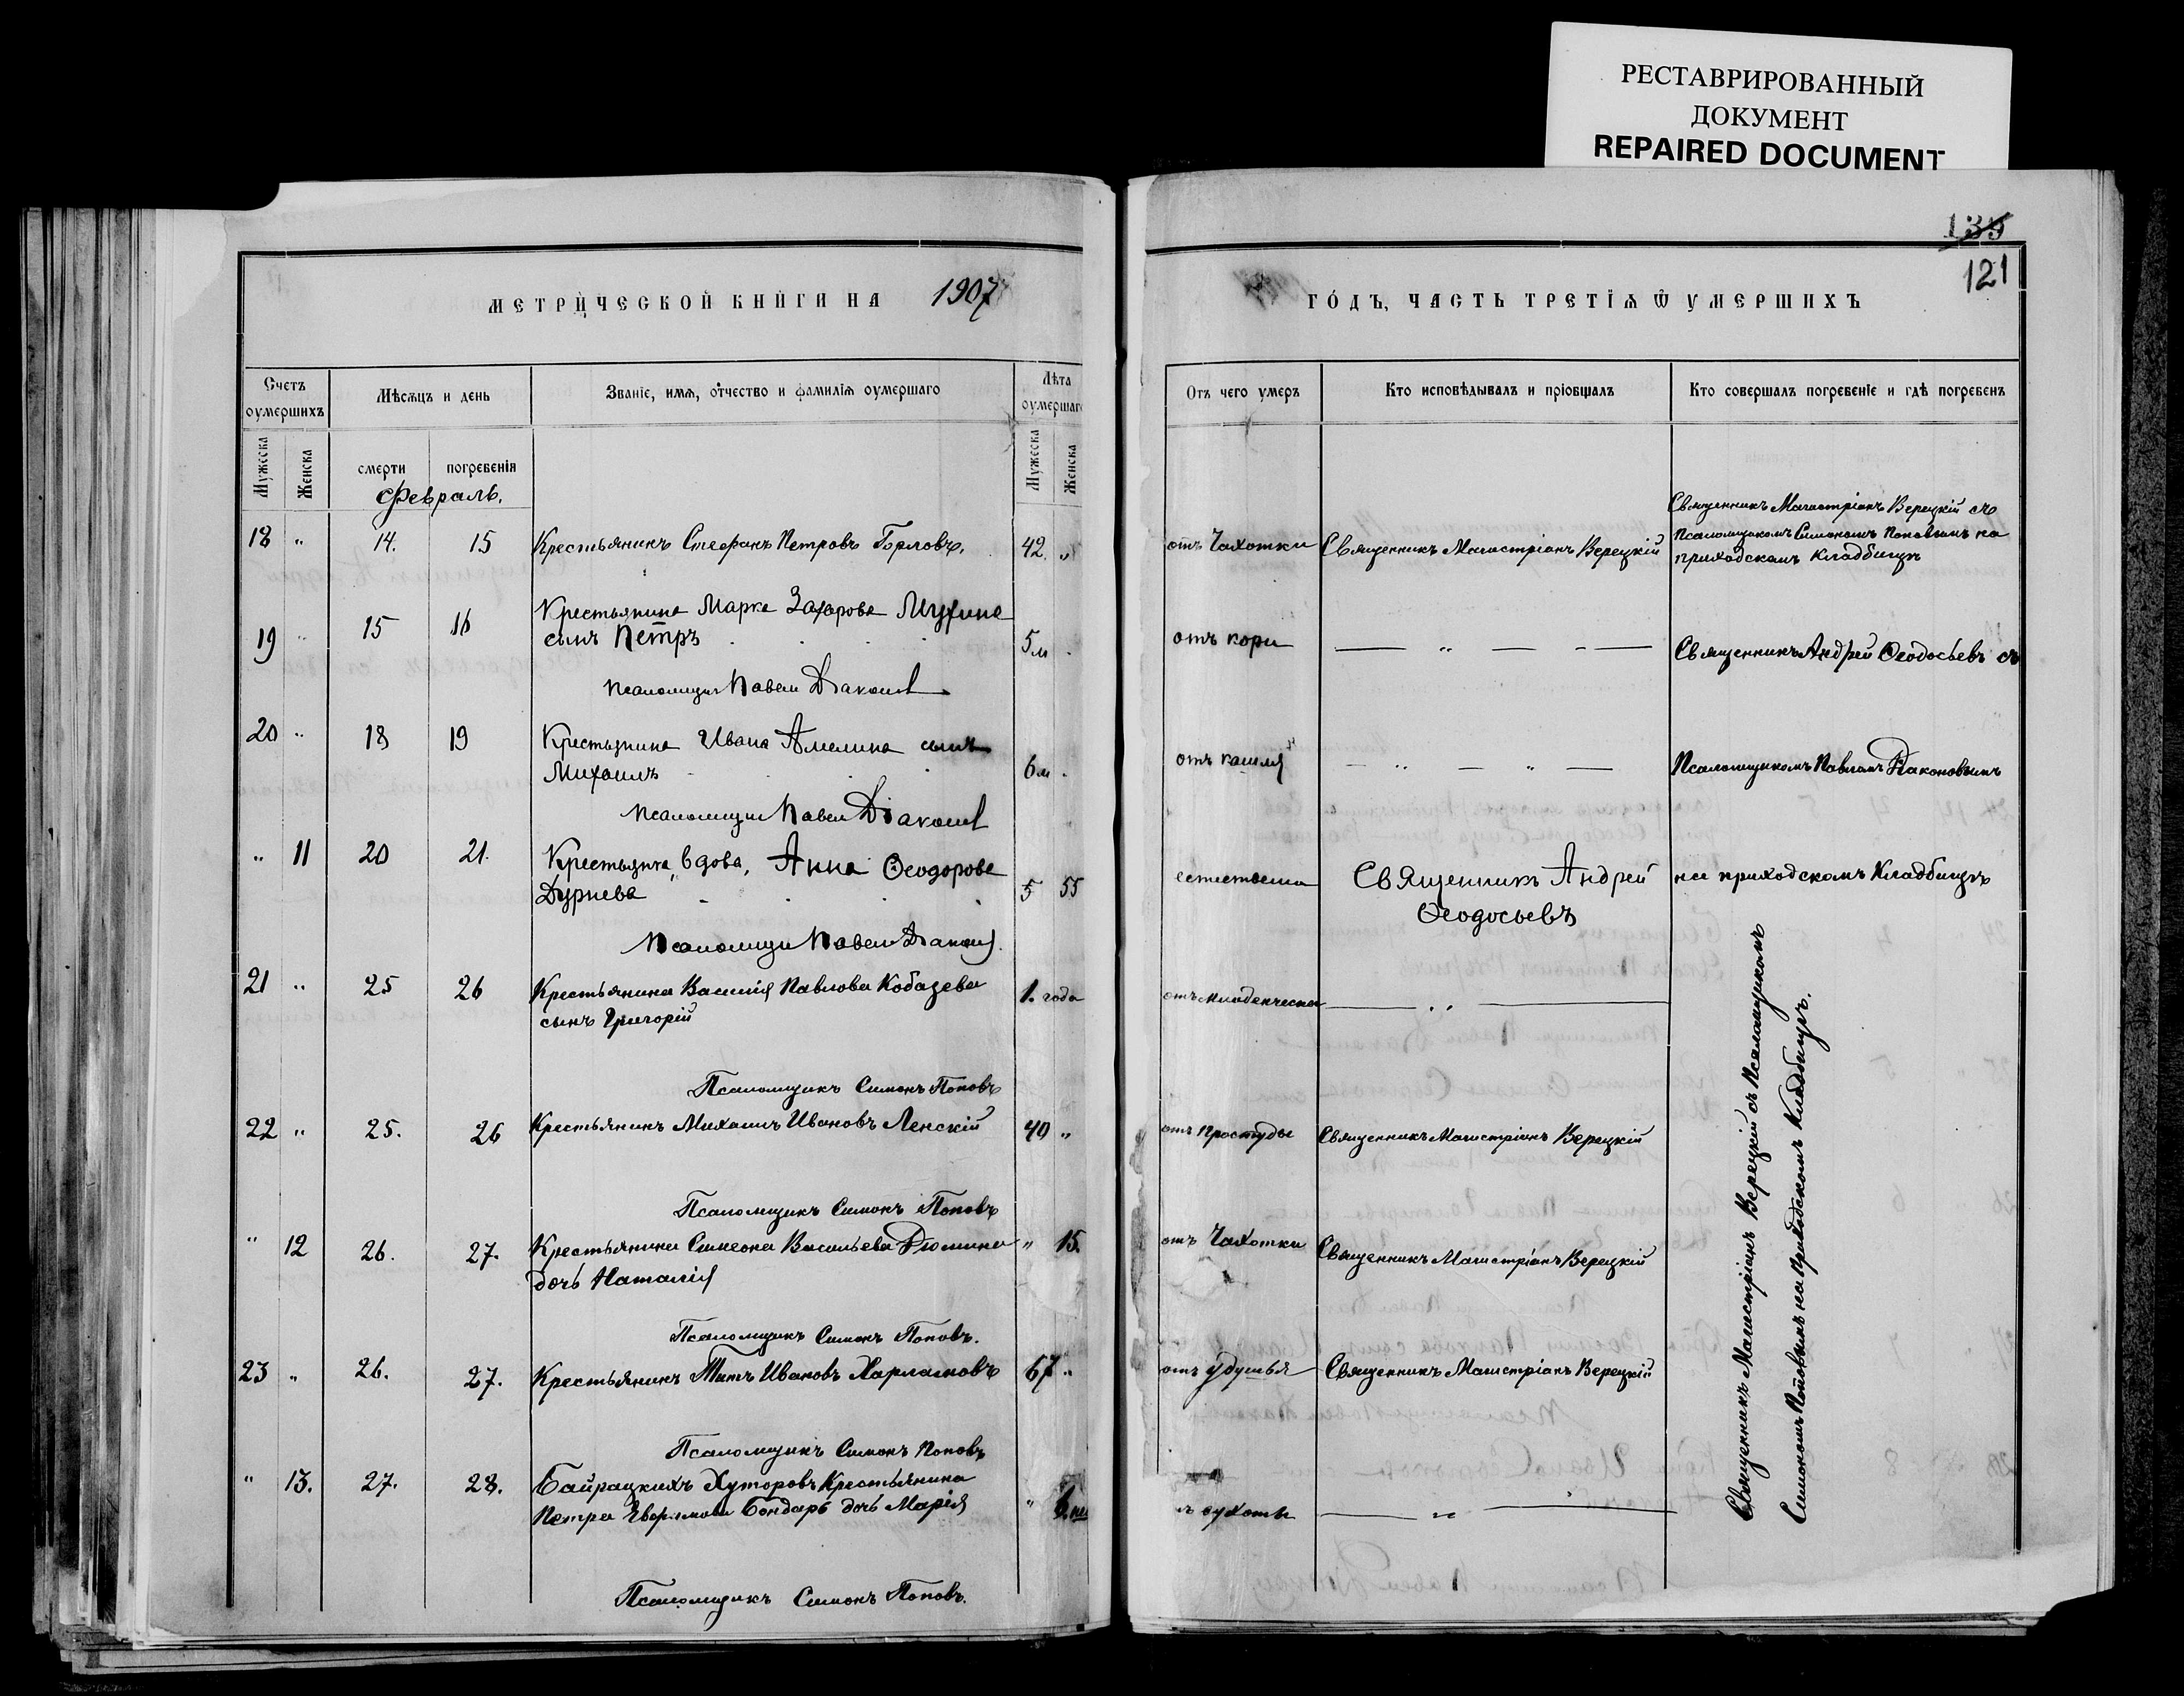 РЕСТАВРИРОВАННЫЙ
ДОКУМЕНТ
REPAIRED DOCUMENT
135
121
МЕТРИЧЕСКОЙ КНИГИ НА 1907
ГОДЪ, ЧАСТЬ ТРЕТІѦ Ѿ УМЕРШИХЪ
Счетъ оумершихъ
Мѣсѧцъ и день
Званіе, имѧ, отчество и фамилія оумершаго
Лѣта оумершаго
Отъ чего умеръ
Кто исповѣдывалъ и пріобщалъ
Кто совершалъ погребеніе и гдѣ погребенъ
Мужеска
Женска
смерти
погребенія
Мужеска
Женска
Февраль.
18 " 14. 15 Крестьянинъ Стефанъ Петровъ Горловъ. 42. "
отъ Чахотки Священникъ Магистріанъ Верецкій
Священникъ Магистріанъ Верецкій съ
Псаломщикомъ Симономъ Поповымъ на
приходскомъ Кладбищѣ
19 " 15 16 Крестьянина Марка Захарова Мухина
сынъ Петръ 5 м
отъ кори — " — - —
Священникъ Андрей Ѳеодосьевъ съ
Псаломщикъ Павелъ Діаконовъ
20 " 18 19 Крестьянина Ивана Амелина сынъ
Михаилъ 6 м.
отъ кашля — " — " —
Псаломщикомъ Павломъ Діаконовымъ
Псаломщикъ Павелъ Діаконовъ
" 11 20 21. Крестьянка, вдова, Анна Ѳеодорова
Дурнева 5 55
естественно Священникъ Андрей
Ѳеодосьевъ
на приходскомъ Кладбищѣ
Псаломщикъ Павелъ Діаконовъ
21 " 25 26 Крестьянина Василія Павлова Кобазева
сынъ Григорій 1. года
отъ младенческой — " —
Псаломщикъ Симонъ Поповъ
22 " 25. 26 Крестьянинъ Михаилъ Ивановъ Ленскій 40 "
отъ простуды Священникъ Магистріанъ Верецкій
Псаломщикъ Симонъ Поповъ
" 12 26. 27. Крестьянина Симеона Васильева Дюмина " 15.
дочь Наталія
отъ Чахотки Священникъ Магистріанъ Верецкій
Псаломщикъ Симонъ Поповъ.
23 " 26. 27. Крестьянинъ Титъ Ивановъ Харламовъ 67 "
отъ удушья Священникъ Магистріанъ Верецкій
Псаломщикъ Симонъ Поповъ
" 13. 27. 28. Байрацкихъ Хуторовъ Крестьянина
Петра Евфимова Бондарь дочь Марія "
сухоты — " —
Псаломщикъ Симонъ Поповъ.
Священникъ Магистріанъ Верецкій съ Псаломщикомъ
Симономъ Поповымъ на Приходскомъ Кладбищѣ.